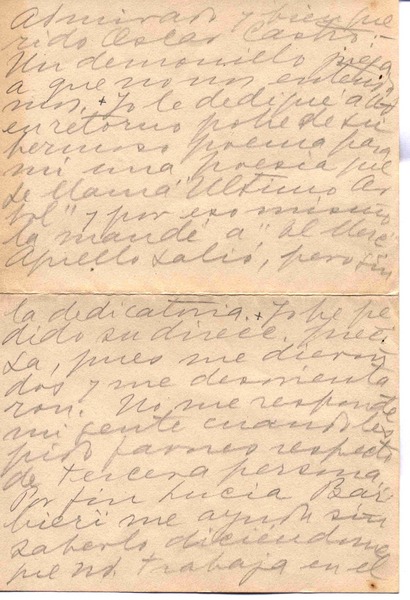 Admirado y bien que
rido Oscar Castro:
Un demonillo juega
a que no nos entenda
mos. + Yo le dediqué a Ud
en retorno pobre de su
hermoso poema para
mí una poesía que
se llama "Ultimo Ar
bol" y por eso mismo
la mandé a "El Merc
Aquello salió, pero sin
la dedicatoria. + Yo he pe
dido su direcc. preci
sa, pues me dieron
dos y me desorienta
ron. No me responde
mi gente cuando les
pido favores respecto
de tercera persona.
Por fin Lucía Bar
bieri me ayuda sin
saberlo diciéndome
que Ud. trabaja en el